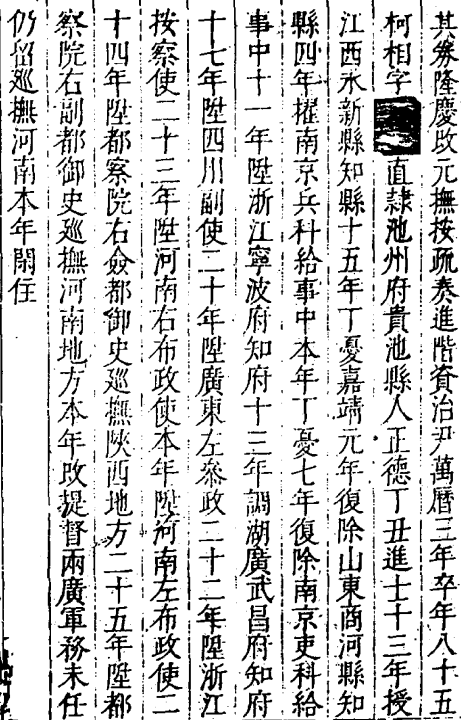 其爵隆慶改元撫按疏奏進階資治尹萬曆三年卒年八十五
柯相字直隸池州府貴池縣人正德丁丑進士十三年授
江西永新縣知縣十五年丁憂嘉靖元年復除山東商河縣知
縣四年擢南京兵科給事中本年丁憂七年復除南京吏科給
事中十一年陞浙江寧波府知府十三年調湖廣武昌府知府
十七年陞四川副使二十年陞廣東左叅政二十二年陞浙江
按察使二十三年陞河南右布政使本年陞河南左布政使二
十四年陞都察院右僉都御史巡撫陝西地方二十五年陞都
察院右副都御史巡撫河南地方本年改提督兩廣軍務未任
仍留巡撫河南本年閑住